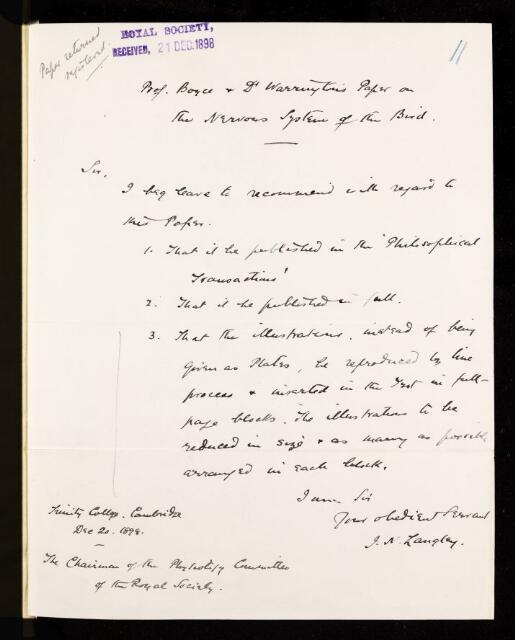 Paper returned
registered.
ROYAL SOCIETY,
RECEIVED, 21 DEC. 1898
11
Prof. Boyce & Dr Warrington's Paper on
the Nervous System of the Bird.
Sir,
I beg leave to recommend with regard to
this Paper.
1. That it be published in the 'Philosophical
Transactions'
2. That it be published in full.
3. That the illustrations, instead of being
given as Plates, be reproduced by line
process & inserted in the Text in full-
page blocks. The illustrations to be
reduced in size & as many as possible
arranged in each block.
I am Sir
Your obedient Servant
J. N. Langley.
Trinity College, Cambridge
Dec 20. 1898.
The Chairman of the Physiology Committee
of the Royal Society.